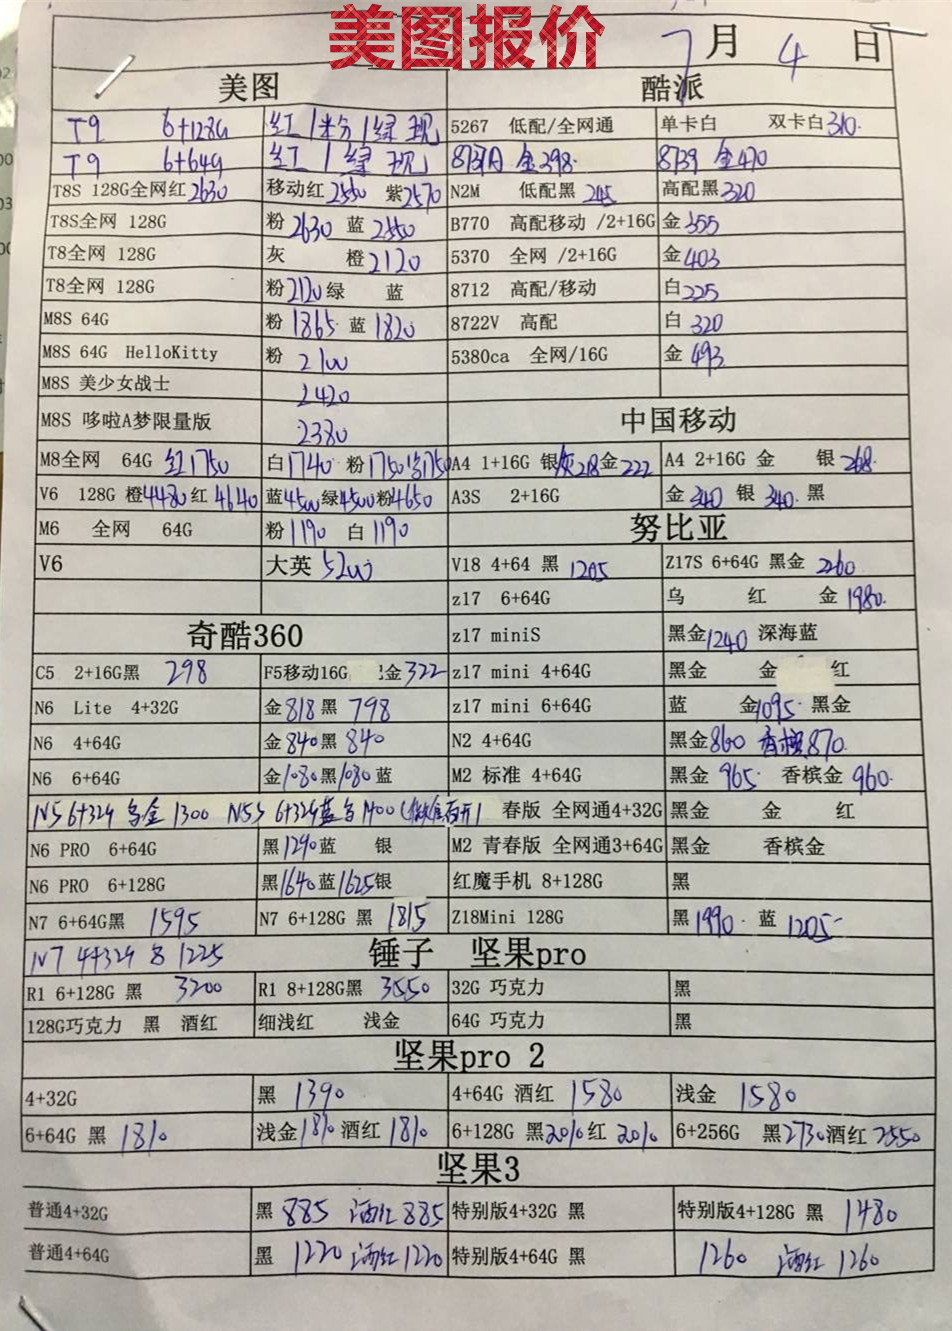 美图报价
7月4日
美图 酷派
T9 6+128G 红1粉1绿 现 5267 低配/全网通 单卡白 双卡白310.
T9 6+64G 红1绿 现 金398. 8739 金470
T8S 128G全网红2630 移动红2550 紫2570 N2M 低配黑245 高配黑320
T8S全网 128G 粉2630 蓝2550 B770 高配移动 /2+16G 金355
T8全网 128G 灰 橙2120 5370 全网 /2+16G 金403
T8全网 128G 粉2120绿 蓝 8712 高配/移动 白225
M8S 64G 粉1865 蓝1820 8722V 高配 白320
M8S 64G HelloKitty 粉2100 5380ca 全网/16G 金493
M8S 美少女战士 2420
M8S 哆啦A梦限量版 2380 中国移动
M8全网 64G 红1750 白1740 粉1750 1750 A4 1+16G 银灰218金222 A4 2+16G 金 银268.
V6 128G 橙4480红4640 蓝4500绿4500粉4650 A3S 2+16G 金340 银340. 黑
M6 全网 64G 粉1190 白1190 努比亚
V6 大英5200 V18 4+64 黑1205 Z17S 6+64G 黑金2260
z17 6+64G 乌 红 金1980.
奇酷360 z17 miniS 黑金1240深海蓝
C5 2+16G黑 298 F5移动16G 金322 z17 mini 4+64G 黑金 金 红
N6 Lite 4+32G 金818黑798 z17 mini 6+64G 蓝 金1095 黑金
N6 4+64G 金840黑840 N2 4+64G 黑金860 香槟870.
N6 6+64G 金1080黑1080蓝 M2 标准 4+64G 黑金965. 香槟金960.
N5 6+32G 乌金1300 N5S 6+32G蓝 1400 春版 全网通4+32G 黑金 金 红
N6 PRO 6+64G 黑1290蓝 银 M2 青春版 全网通3+64G 黑金 香槟金
N6 PRO 6+128G 黑1640蓝1625银 红魔手机 8+128G 黑
N7 6+64G黑 1595 N7 6+128G 黑 1815 Z18Mini 128G 黑1990. 蓝1205
N7 4+32G 1225 锤子 坚果pro
R1 6+128G 黑 3200 R1 8+128G黑 3550 32G 巧克力 黑
128G巧克力 黑 酒红 细浅红 浅金 64G 巧克力 黑
坚果pro 2
4+32G 黑 1390 4+64G 酒红 1580 浅金 1580
6+64G 黑 1810 浅金1810酒红1810 6+128G 黑2010红2010 6+256G 黑2730酒红2550
坚果3
普通4+32G 黑 885 酒红885 特别版4+32G 黑 特别版4+128G 黑 1480
普通4+64G 黑 1220 酒红1220 特别版4+64G 黑 1260 酒红1260